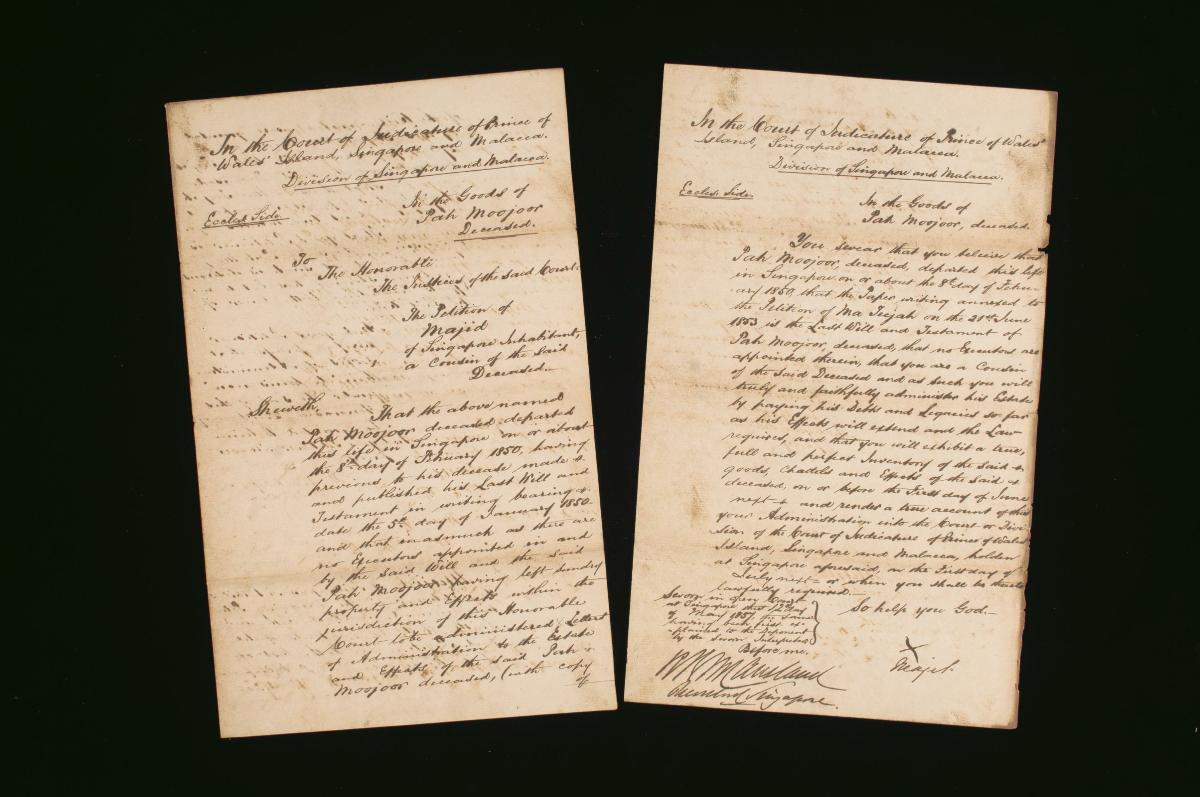 In the Court of Judicature of Prince of
Wales' Island, Singapore and Malacca.
Division of Singapore and Malacca.
Eccles. Side.
In the Goods of
Pah Moojoor
Deceased.
To
The Honorable
The Justices of the said Court.
The Petition of
Majid
of Singapore Inhabitant,
a Cousin of the Said
Deceased.
Sheweth,
That the above named
Pah Moojoor deceased departed
this life in Singapore on or about
the 8th day of February 1850, having
previous to his decease made &
and published his Last Will and
Testament in writing bearing
date the 5th day of January 1850
and that inasmuch as there are
no Executors appointed in and
by the said Will and the said
Pah Moojoor having left sundry
property and Effects within the
jurisdiction of this Honorable
Court administered Letters
of Administration to the Estate
and Effects of the said Pah
Moojoor deceased, (with copy
of
In the Court of Judicature of Prince of Wales'
Island, Singapore and Malacca.
Division of Singapore and Malacca.
Eccles. Side.
In the Goods of
Pah Moojoor, deceased.
You swear that you beleive that
Pah Moojoor, deceased, departed this life
in Singapore on or about the 8th day of Febru-
ary 1850, that the Paper writing annexed to
the Petition of Ma on the 21st June
1853 is the Last Will and Testament of
Pah Moojoor, deceased, that no Executors are
appointed therein, that you are a Cousin
of the Said Deceased and as such you will
truly and faithfully administer his Estate
by paying his Debts and Legacies so far
as his Effects will extend and the Law
requires, and that you will exhibit a true,
full and perfect Inventory of the Said
goods, Chattels and Effects of the Said
deceased on or before the First day of June
next and render a true account of this
your Administration into the Court or Divi-
sion of the Court of Judicature of Prince of Wales'
Island, Singapore and Malacca, holden
at Singapore aforesaid, on the First day of
July next or when you shall be thereto
lawfully required.
So help you God.
Sworn in open Court
at Singapore this 12th day
of May 1857, the same
having been first ex-
plained to the Deponent
by the Sworn Interpreter
Before me.
Singapore.
X
Majid